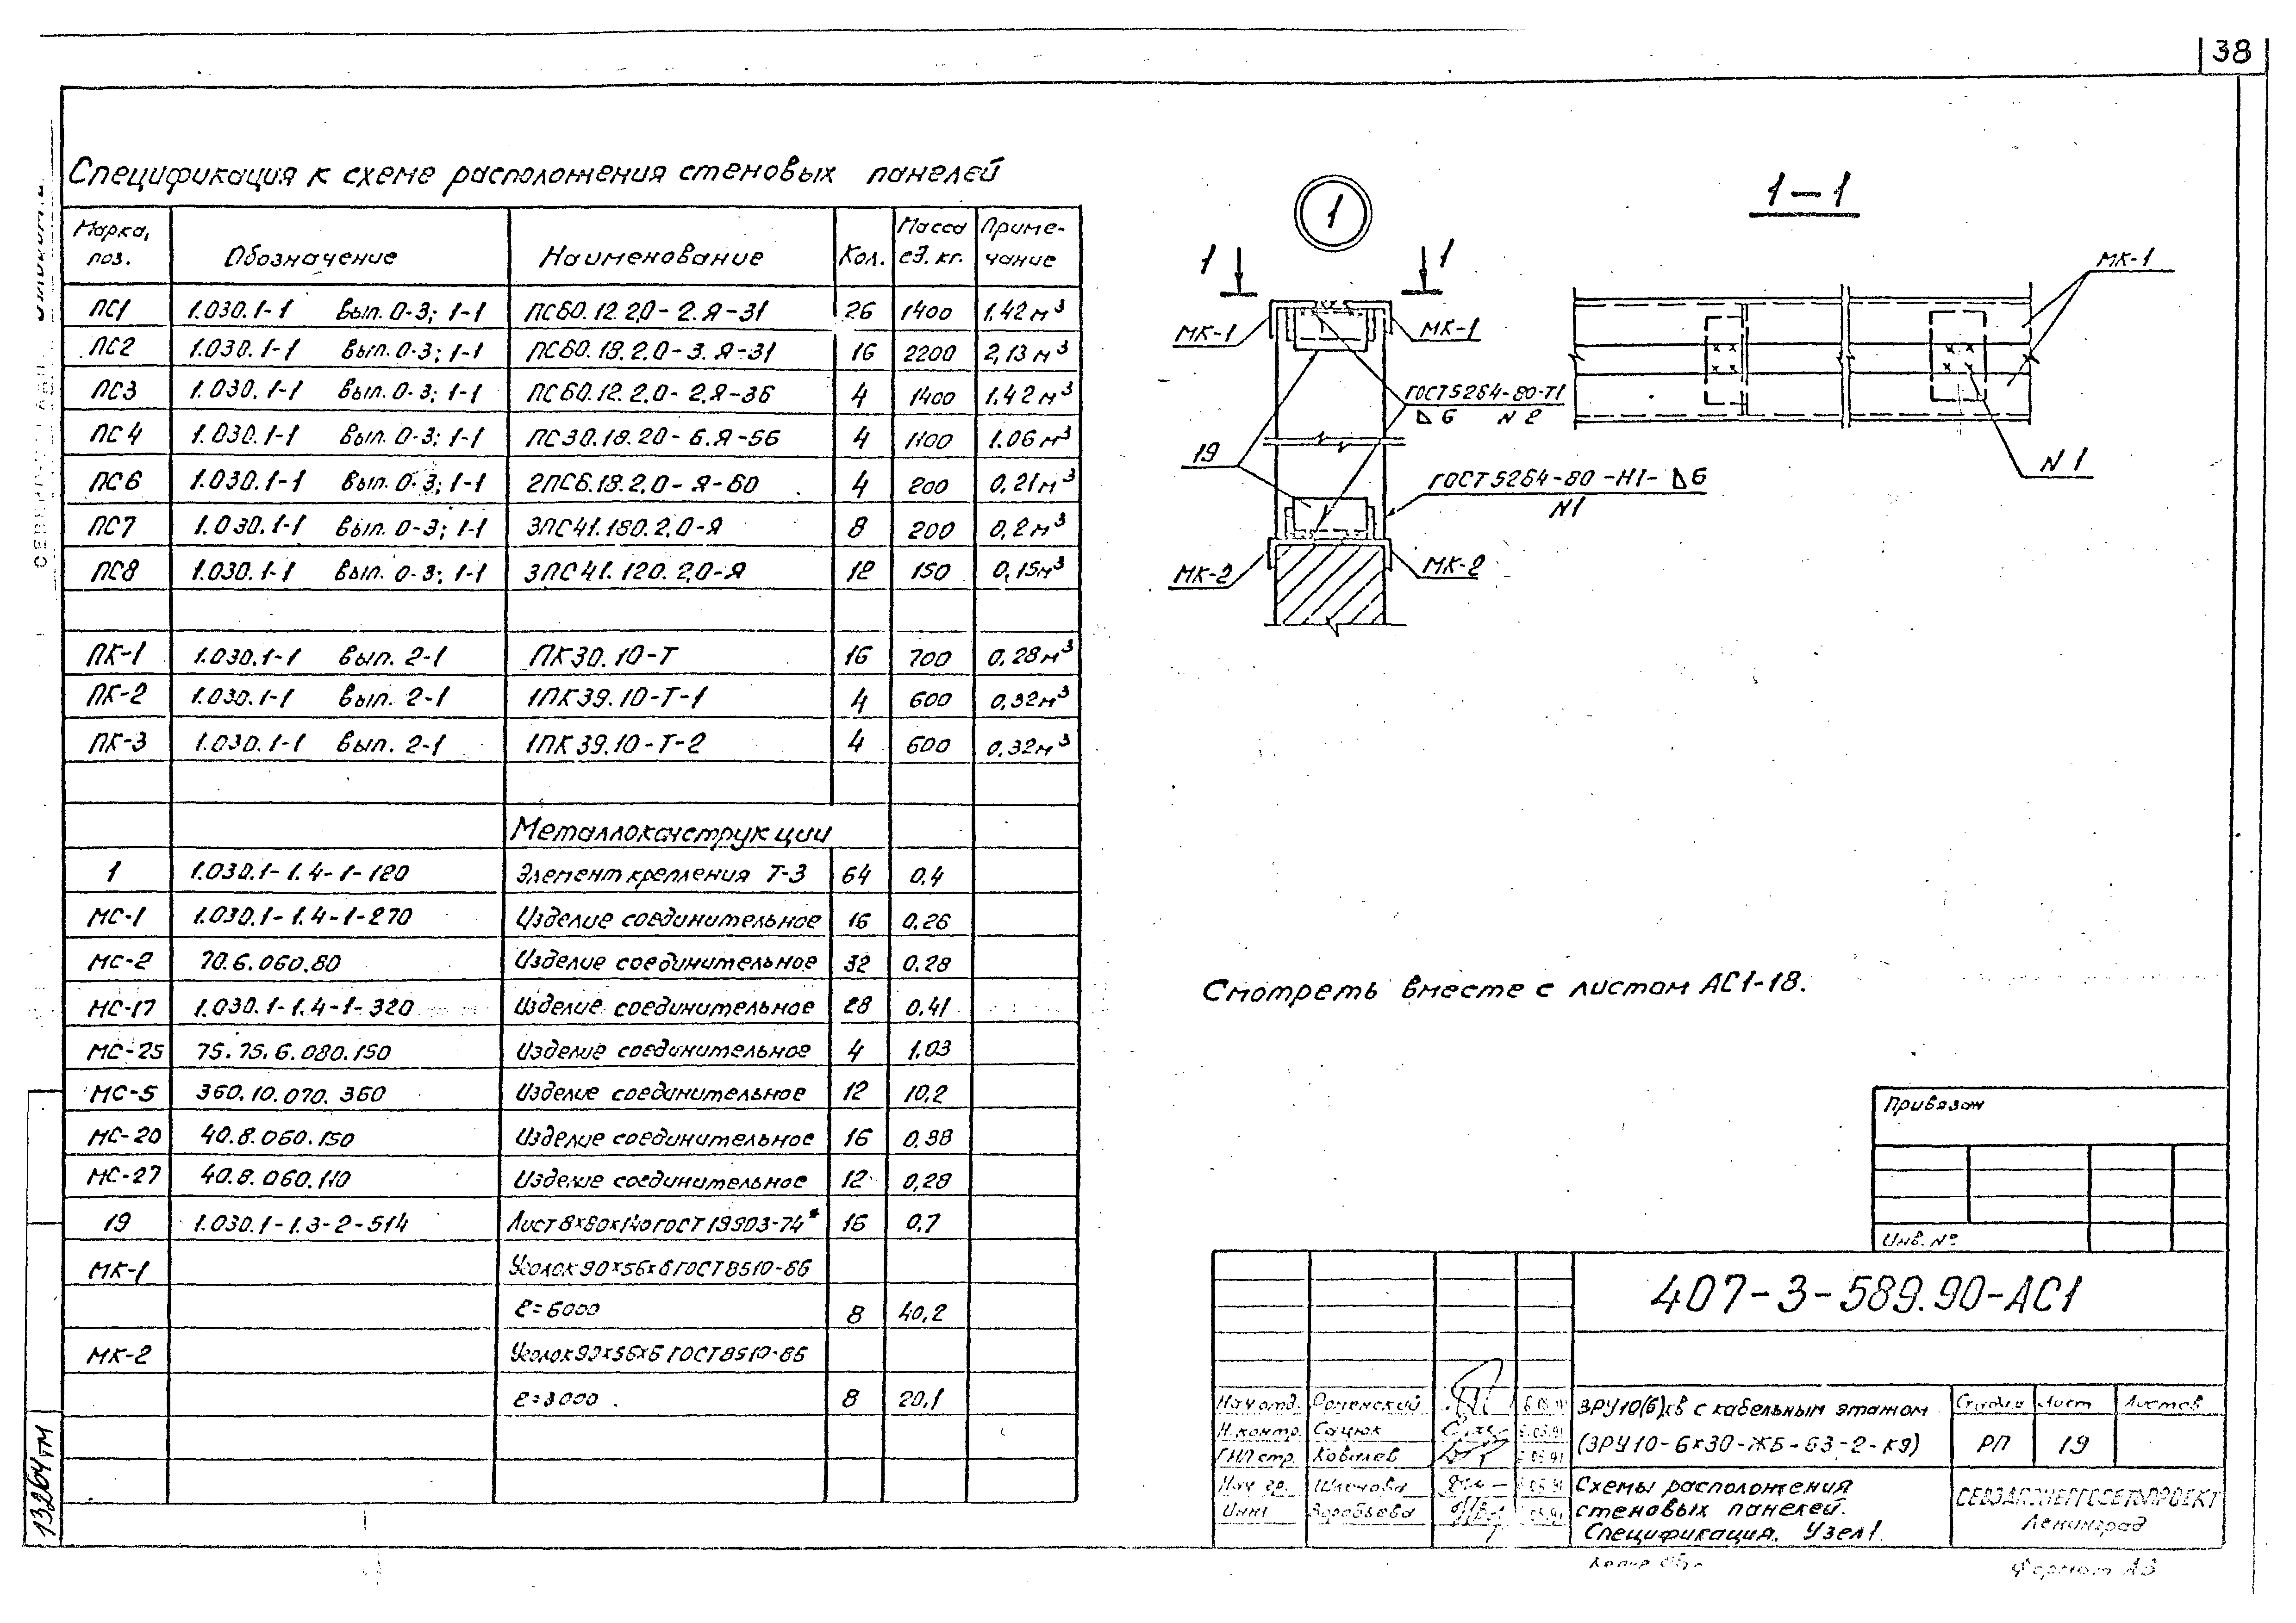 38
Спецификация к схеме расположения стеновых панелей
Марка, поз. Обозначение Наименование Кол. Масса ед. кг. Приме-чание
ПС1 1.030.1-1 Вып. 0-3; 1-1 ПС60.12.2,0-2.Я-31 26 1400 1.42 м³
ПС2 1.030.1-1 Вып. 0-3; 1-1 ПС60.18.2.0-3.Я-31 16 2200 2,13 м³
ПС3 1.030.1-1 Вып. 0-3; 1-1 ПС60.12.2.0-2.Я-36 4 1400 1.42 м³
ПС4 1.030.1-1 Вып. 0-3; 1-1 ПС30.18.20-6.Я-56 4 1100 1.06 м³
ПС6 1.030.1-1 Вып. 0-3; 1-1 2ПС6.18.2,0-Я-60 4 200 0,21 м³
ПС7 1.030.1-1 Вып. 0-3; 1-1 3ПС41.180.2.0-Я 8 200 0,2 м³
ПС8 1.030.1-1 Вып. 0-3; 1-1 3ПС41.120.2,0-Я 12 150 0,15 м³
ПК-1 1.030.1-1 Вып. 2-1 ПК30.10-Т 16 700 0,28 м³
ПК-2 1.030.1-1 Вып. 2-1 1ПК39.10-Т-1 4 600 0,32 м³
ПК-3 1.030.1-1 Вып. 2-1 1ПК39.10-Т-2 4 600 0,32 м³
Металлоконструкции
1 1.030.1-1.4-1-120 Элемент крепления Т-3 64 0,4
МС-1 1.030.1-1.4-1-270 Изделие соединительное 16 0,26
МС-2 70.6.060.80 Изделие соединительное 32 0.28
МС-17 1.030.1-1.4-1-320 Изделие соединительное 28 0,41
МС-25 75.75.6.080.150 Изделие соединительное 4 1.03
МС-5 360.10.070.360 Изделие соединительное 12 10,2
МС-20 40.8.060.150 Изделие соединительное 16 0,38
МС-27 40.8.060.110 Изделие соединительное 12 0,28
19 1.030.1-1.3-2-514 Лист 8×80×140 ГОСТ 19903-74* 16 0,7
МК-1 Уголок 90×56×6 ГОСТ 8510-86
ℓ=6000 8 40,2
МК-2 Уголок 90×56×6 ГОСТ 8510-86
ℓ=3000 8 20,1
1
1 1
МК-1 МК-1
ГОСТ 5264-80-Т1
⊿6 N 2
19
ГОСТ 5264-80-Н1-⊿6
N1
МК-2 МК-2
1-1
МК-1
N 1
Смотреть вместе с листом АС1-18.
Привязан
Инв. №
407-3-589.90-АС1
Нач отд. Роменский
Н.контр. Сацюк
ГИП стр. Ковалев
Нач гр.
Воробьева
ЗРУ10(6)кв с кабельным этажом
(ЗРУ10-6×30-ЖБ-63-2-К9)
Стадия Лист Листов
РП 19
Схемы расположения
стеновых панелей.
Спецификация. Узел 1.
СЕВЗАПЭНЕРГОСЕТЬПРОЕКТ
Ленинград
Формат А3
13264тм